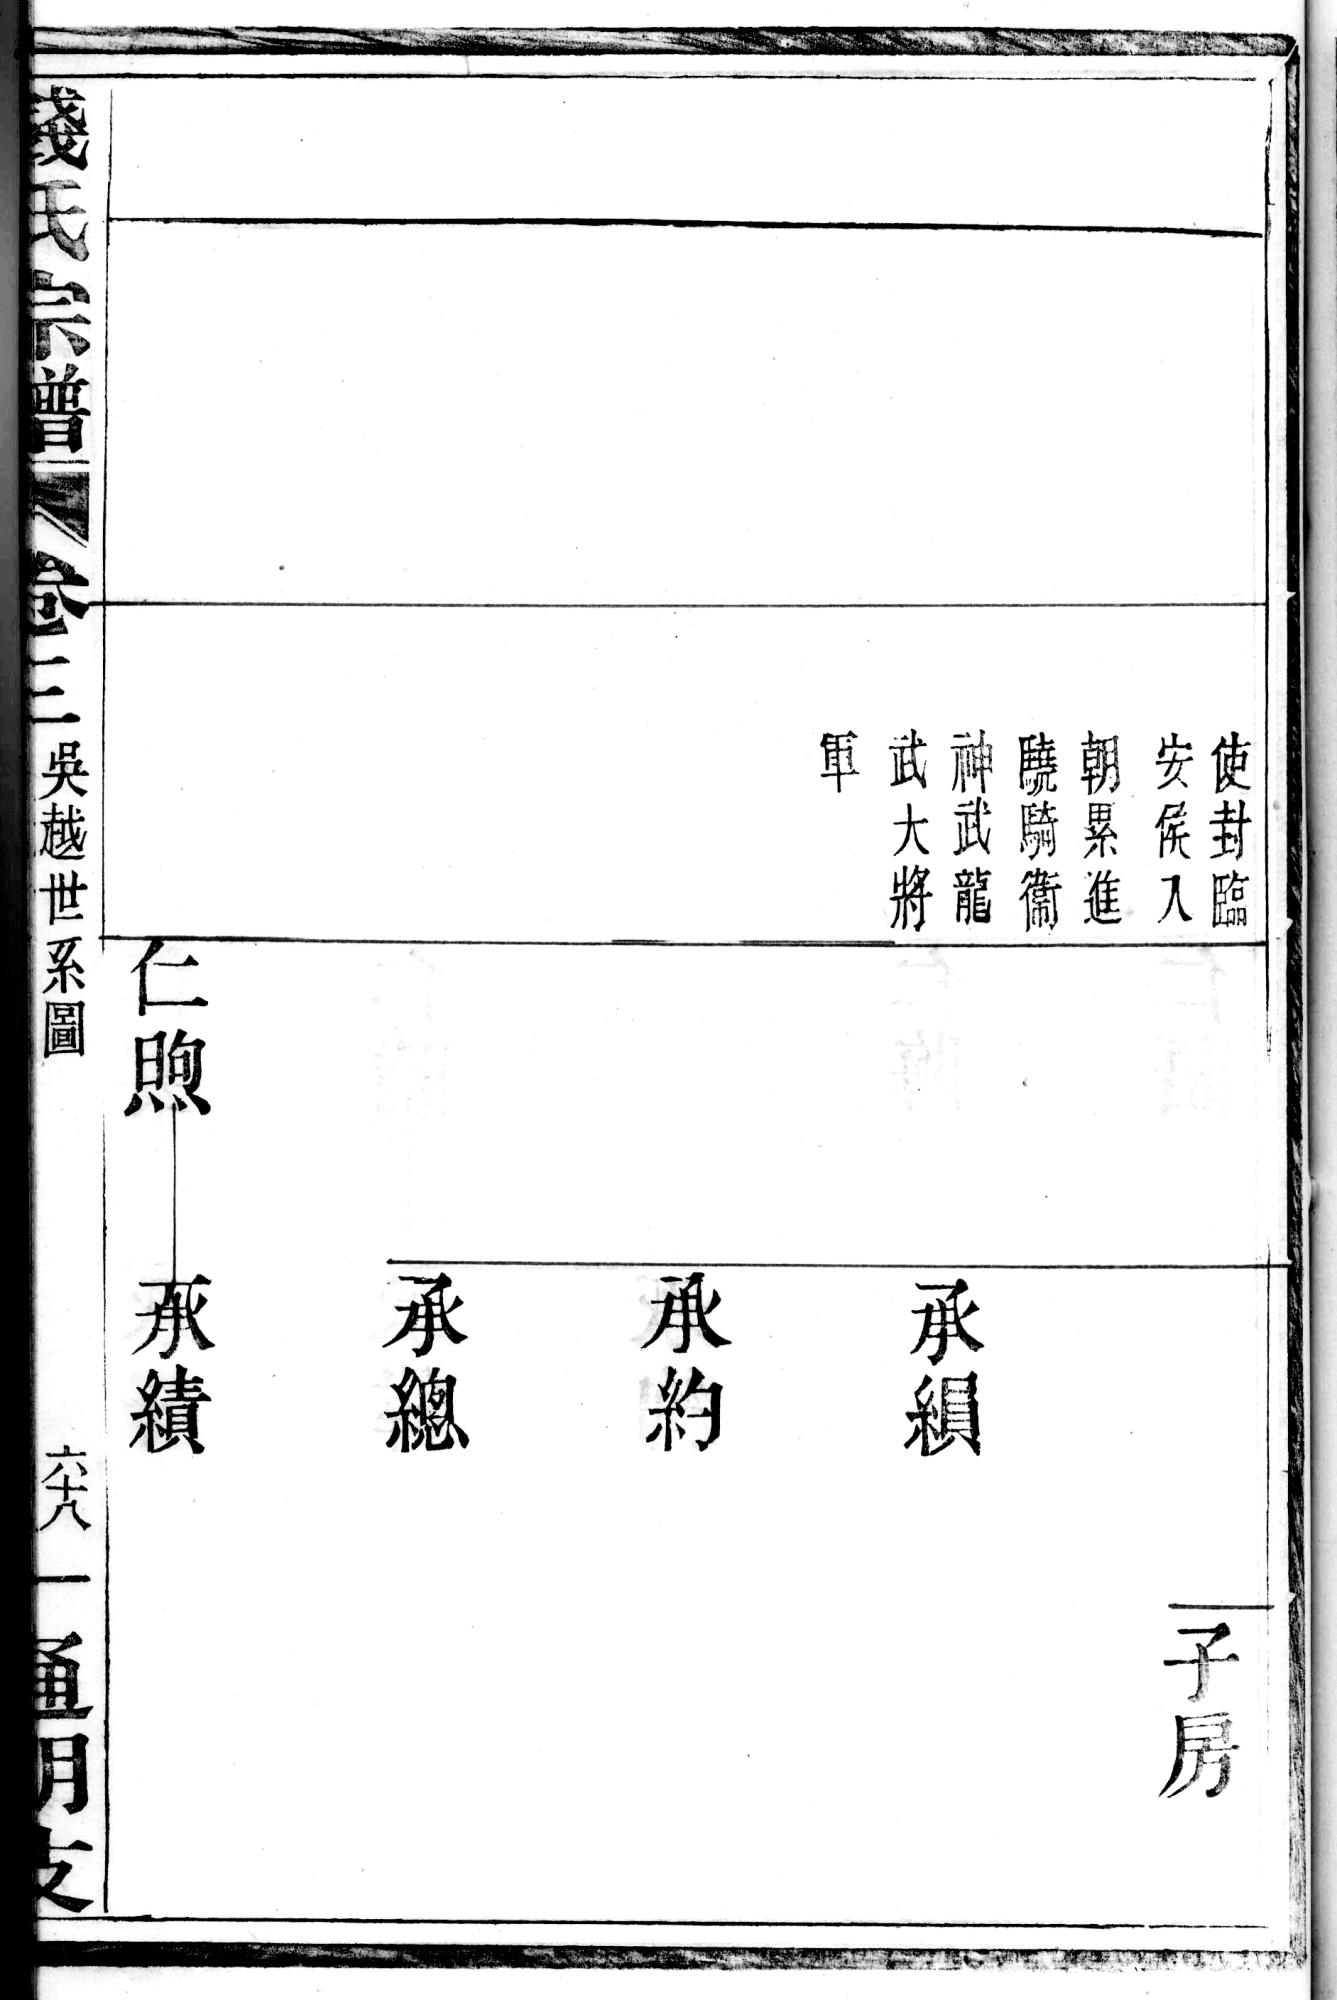 使封臨
安侯入
朝累進
驍騎衞
神武龍
武大將
軍
子房
承縜
承約
承總
仁煦
承績
錢氏宗譜
卷三
吳越世系圖
六十八
一
通明支